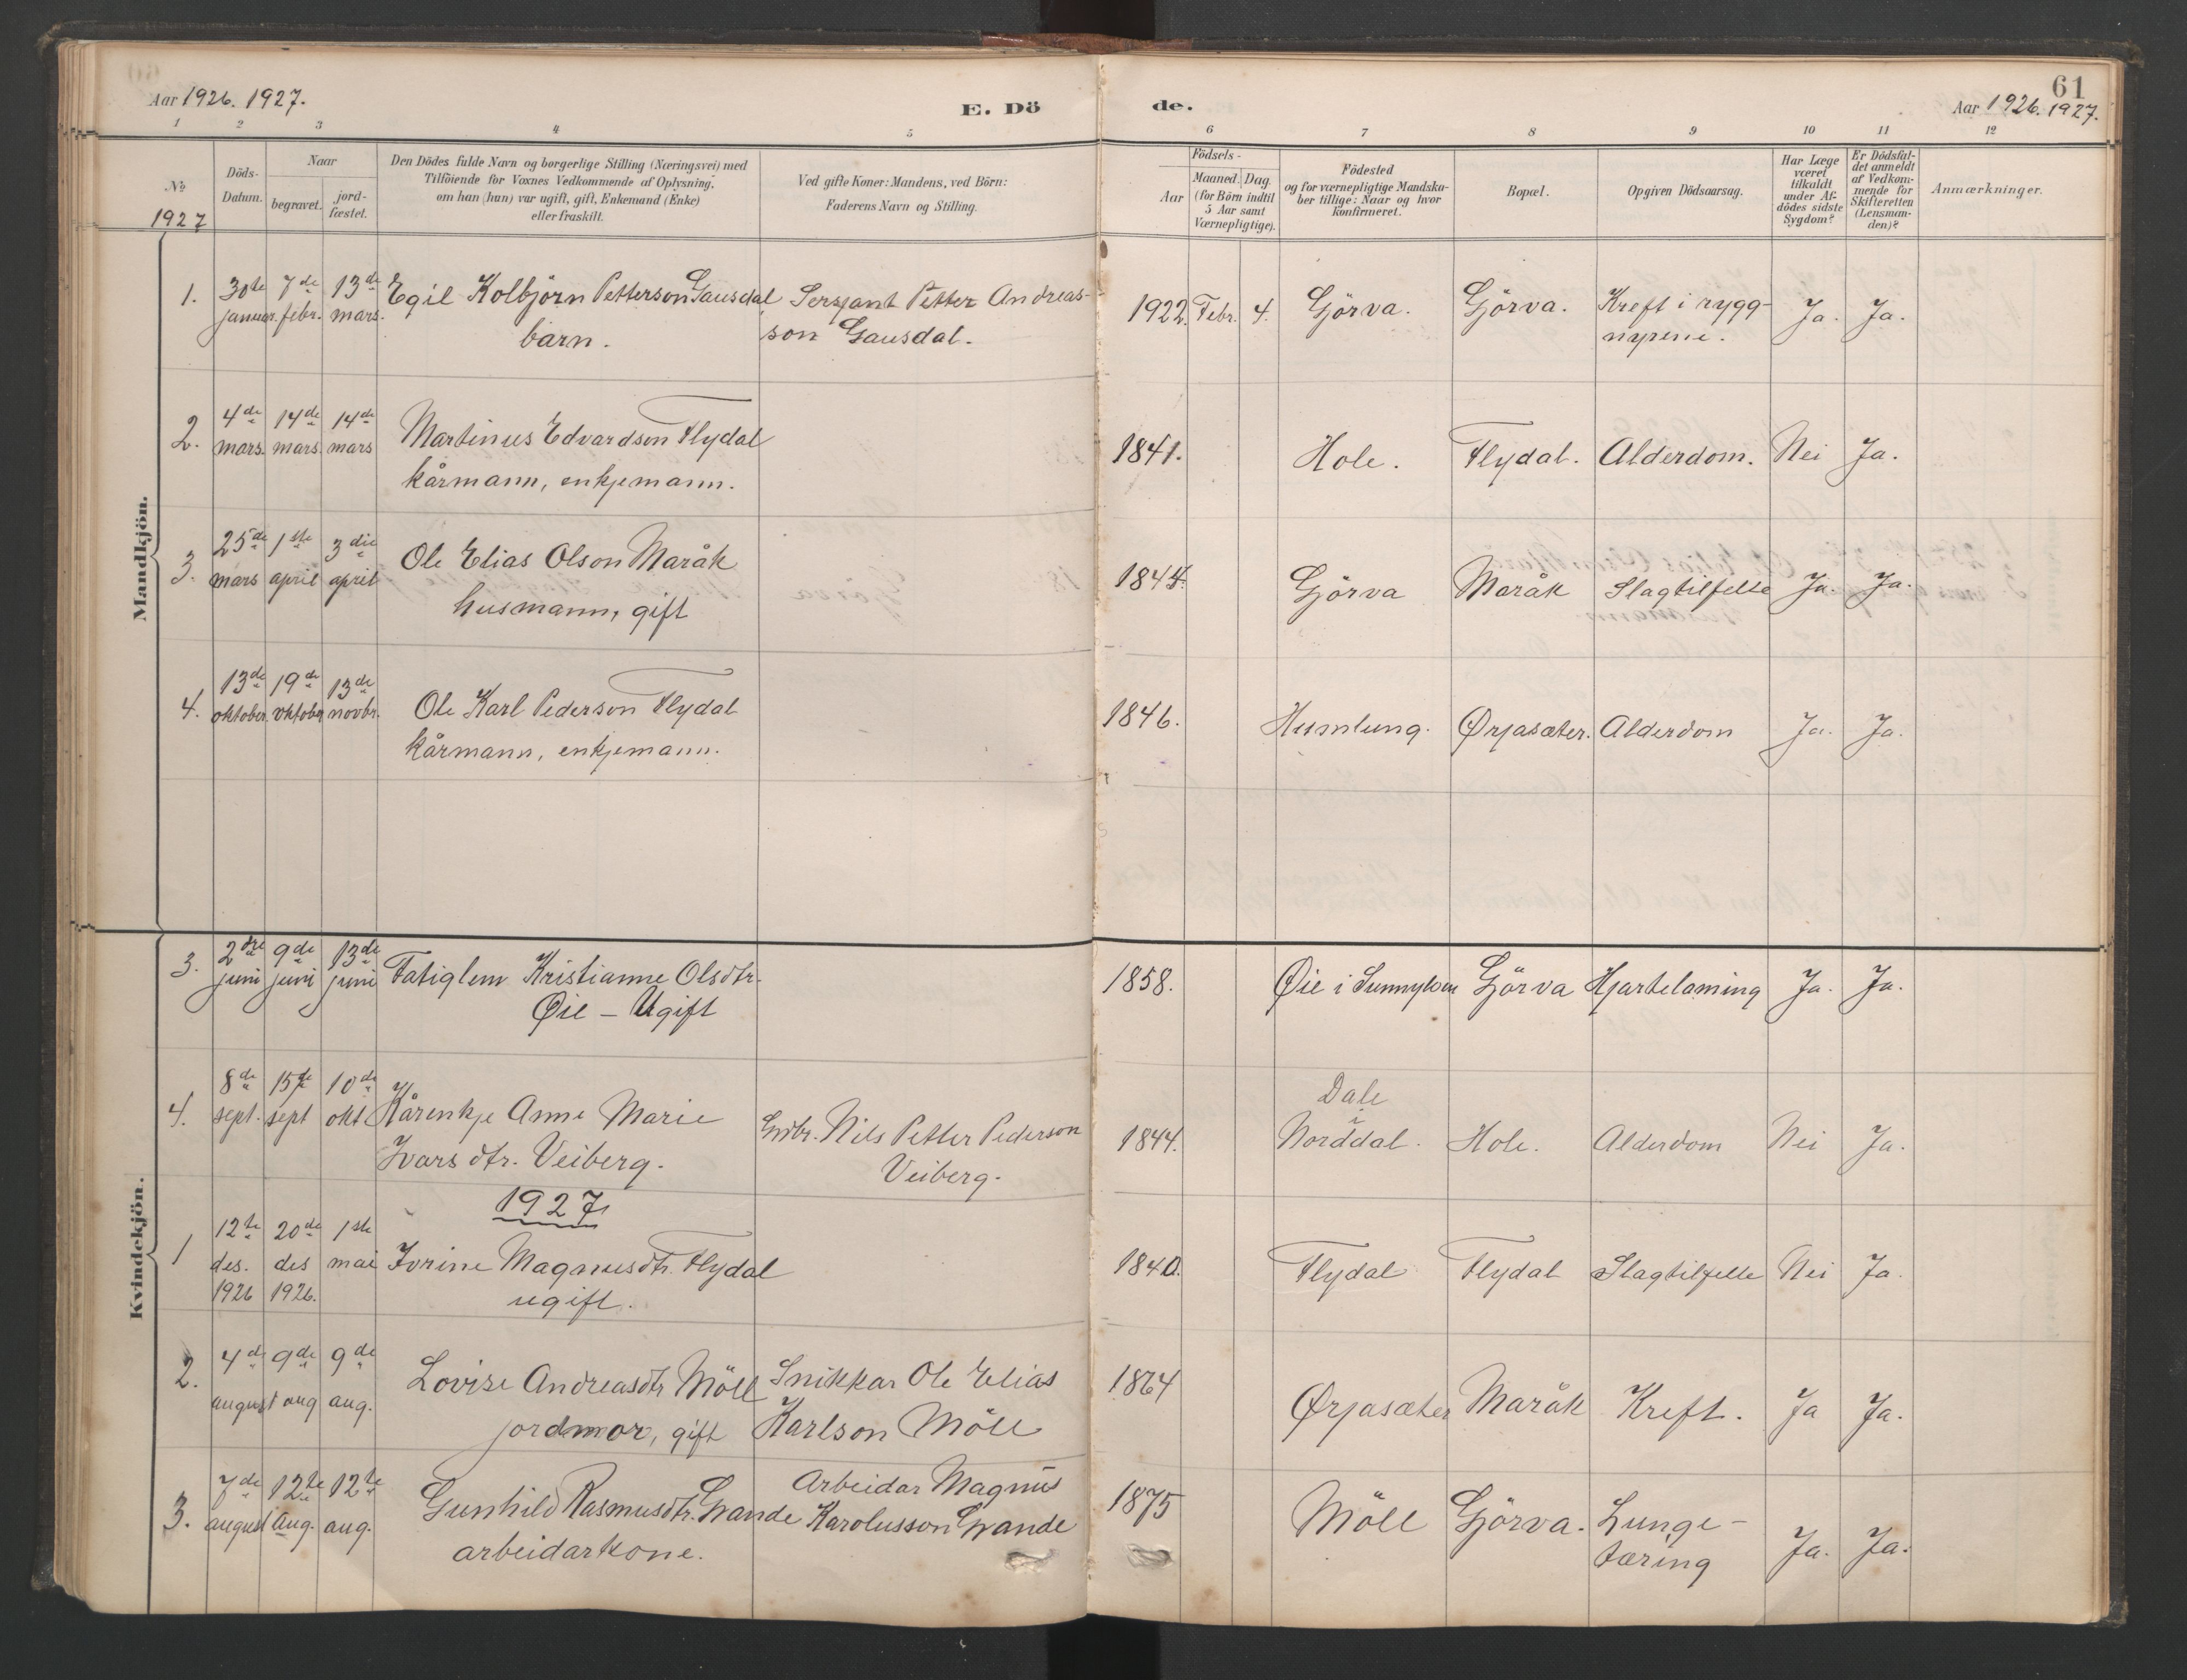 61
Aar 1926. 1927.
E. Dö de.
Aar 1926. 1927.
1 2 3 4 5 6 7 8 9 10 11 12
No
1927
Döds-
Datum.
Naar
begravet.
jord-
fæstet.
Den Dödes fulde Navn og borgerlige Stilling (Næringsvei) med
Tilföiende for Voxnes Vedkommende af Oplysning,
om han (hun) var ugift, gift, Enkemand (Enke)
eller fraskilt.
Ved gifte Koner: Mandens, ved Börn:
Faderens Navn og Stilling.
Födsels-
Aar
Maaned. Dag.
(for Börn indtil
5 Aar samt
Værnepligtige).
Födested
og for værnepligtige Mandska-
ber tillige: Naar og hvor
konfirmeret.
Bopæl.
Opgiven Dödsaarsag.
Har Læge
været
tilkaldt
under Af-
dödes sidste
Sygdom?
Er Dödsfal-
det anmeldt
af Vedkom-
mende for
Skifteretten
(Lensman-
den)?
Anmærkninger.
Mandkjön.
1. 30te januar. 7de febr. 13de mars. Egil Kolbjörn Petterson Gausdal Sersjant Petter Andreas-
barn. son Gausdal.
1922. Febr. 4. Gjörva. Gjörva. Kreft i rygg-
nyrene. Ja. Ja.
2. 4de mars. 14de mars. 14de mars Martinus Edvardson Flydal
kårmann, enkjemann.
1841. Hole. Flydal. Alderdom. Nei Ja.
3. 25de mars 1ste april 3die april Ole Elias Olson Maråk
husmann, gift
1844. Gjörva Maråk Slagtilfelle Ja. Ja.
4. 13de oktober. 19de oktober 13de novbr. Ole Karl Pederson Flydal
kårmann, enkjemann.
1846. Humlung. Ørjasæter. Alderdom Ja. Ja.
Kvindekjön.
3. 2dre juni 9de juni 13de juni Fatiglem Kristianne Olsdtr.
Øie – Ugift
1858. Øie i Sunnylven Gjörva Hjartelaming Ja. Ja.
4. 8de sept. 15de sept 10de okt Kårenkje Anne Marie Grdbr. Nils Petter Pederson
Ivarsdtr. Veiberg. Veiberg.
1844. Dale
i
Norddal. Hole. Alderdom Nei Ja.
1927
1 12te des. 1926 20de des 1926. 1ste mai Ivrine Magnusdtr. Flydal
ugift.
1840. Flydal Flydal Slagtilfelle Nei Ja.
2. 4de august 9de aug 9de aug. Lovise Andreasdtr Möll Snikkar Ole Elias
jordmor, gift Karlson Möll
1864 Ørjasæter Maråk Kreft. Ja Ja.
3. 7de august 12te aug. 12te aug. Gunhild Rasmusdtr. Grande Arbeidar Magnus
arbeidarkone. Karolusson Grande
1875 Möll Gjörva. Lunge-
tæring Ja. Ja.